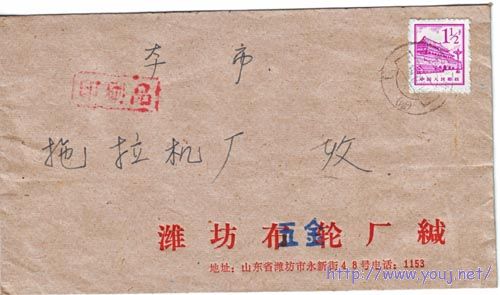 1½
中国人民邮政
本市
印刷品
拖拉机厂 收
潍坊布轮厂缄
五金
地址:山东省潍坊市永新街48号电话:1153
http://www.youj.net/